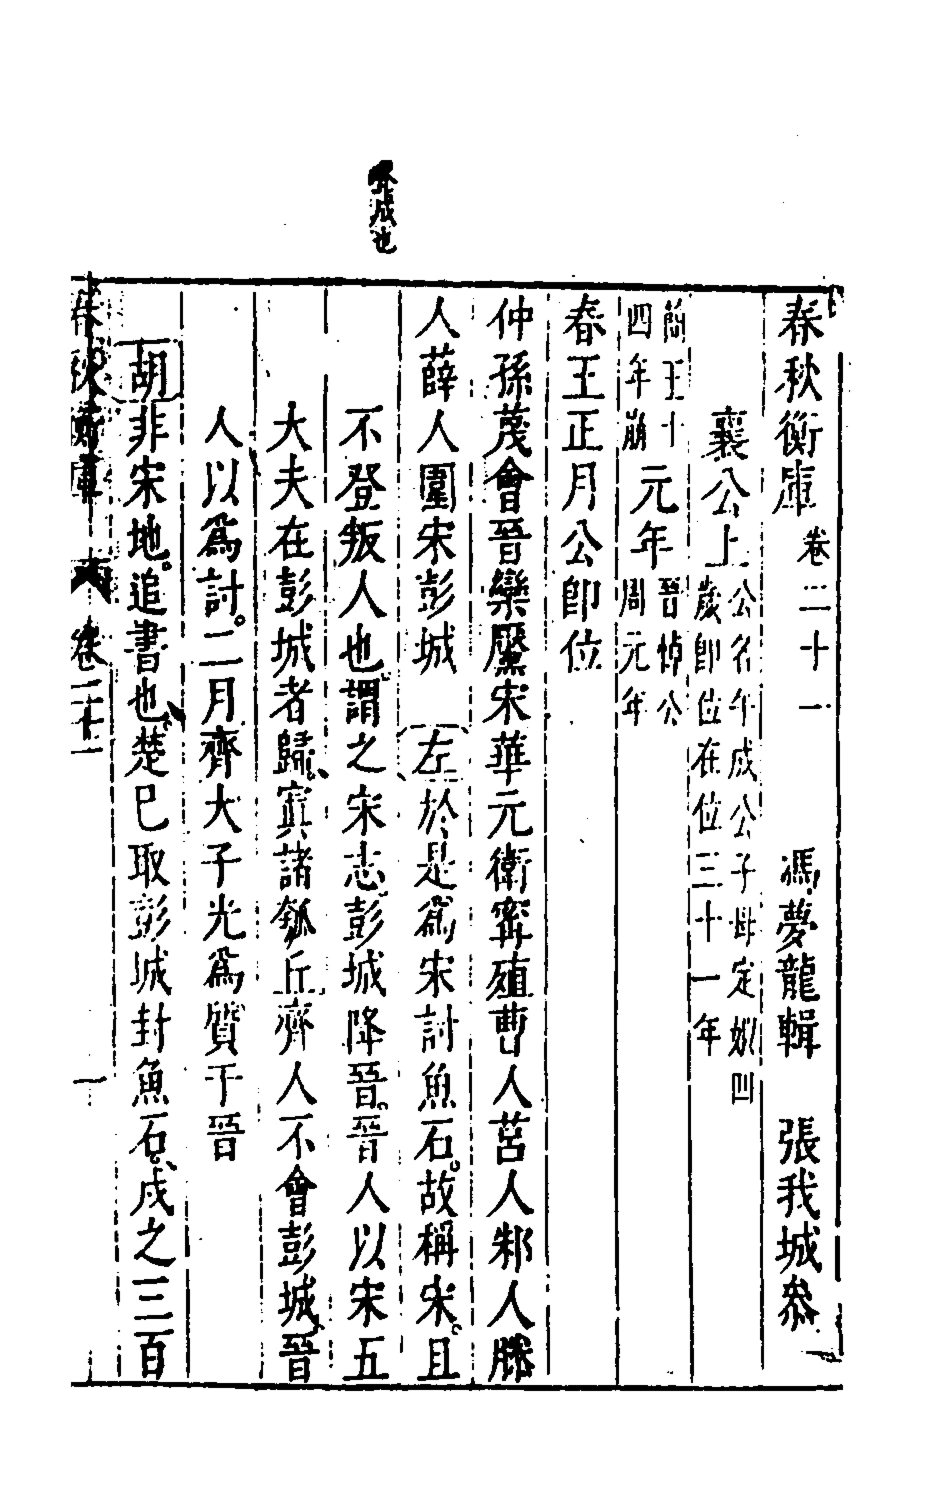 春秋衡庫 卷二十一 馮夢龍輯 張我城叅
襄公上 公名午成公子母定姒四歲即位在位三十一年
簡王十四年崩 元年 晉悼公周元年
春王正月公即位
仲孫蔑會晉欒黶宋華元衛甯殖曹人莒人邾人滕
人薛人圍宋彭城 左 於是為宋討魚石故稱宋且
不登叛人也謂之宋志彭城降晉晉人以宋五
大夫在彭城者歸寘諸瓠丘齊人不會彭城晉
人以為討二月齊大子光為質于晉
胡 非宋地追書也楚已取彭城封魚石戍之三百
春秋衡庫 卷二十一 一
成也